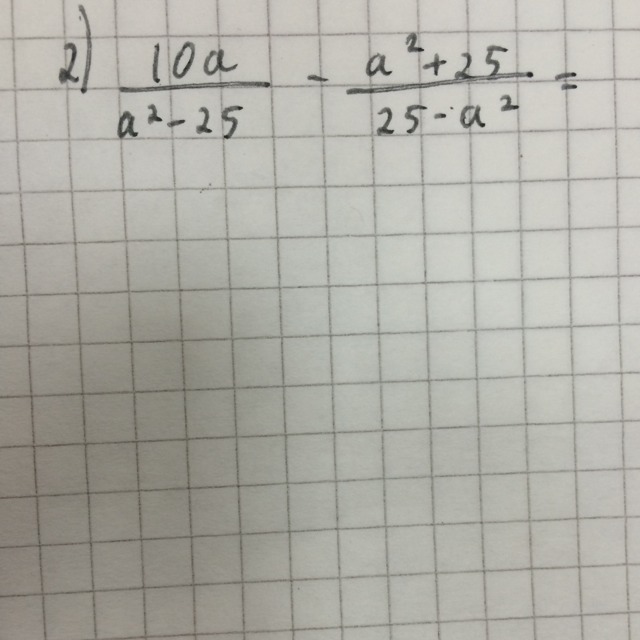 2) 10a/(a²-25) - (a²+25)/(25-a²) =